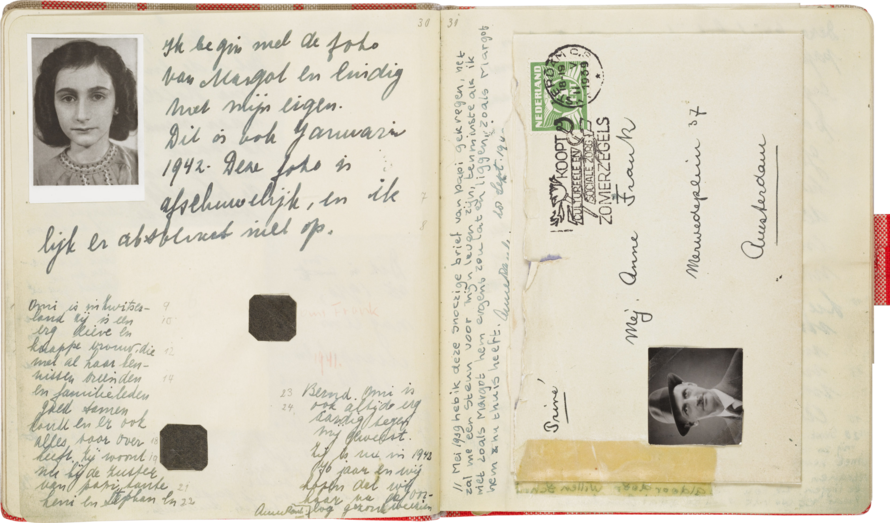 30
Ik begin met de foto
van Margot en eindig
met mijn eigen.
Dit is ook Januari
1942. Deze foto is
afschuwelijk, en ik
lijk er absoluut niet op.
7
8
Omi is in Zwitser-
land zij is een
erg lieve en
knappe vrouw, die
met al haar ken-
nissen vrienden
en familieleden
goed samen
en er ook
alles, voor over
heeft. Zij woont
zuster
en Stephan en
9
10
12
14
21
22
23
24
Bernd. Omi is
ook altijd erg
aardig tegen
mij geweest.
Zij is nu in 1942
76 jaar en wij
hopen dat wij
haar na de oor-
log gezond weerzien
31
11 Mei 1939 heb ik deze snoezige brief van Papi gekregen, het
zal me een steun voor mijn leven zijn, tenminste als ik
niet zoals Margot hem ergens zou laten liggen, zoals Margot
hem thuis heeft.
Anne 10 Sept. 1942.
NEDERLAND
1939
KOOPT
CULTUREELE EN
SOCIALE ZORG
ZOMERZEGELS
Mej. Anne Frank
Merwedeplein 37
Amsterdam
Privé